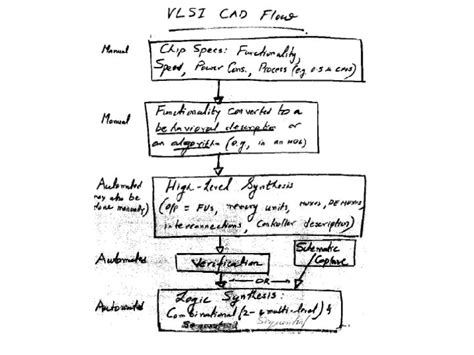 VLSI CAD Flow
Manual
Chip Specs: Functionality,
Speed, Power Cons., Process (eg. 0.5 u CMOS)
Manual
Functionality converted to a
behavioral description or
an algorithm (e.g., in an HDL)
Automated
may also be
done manually)
High-Level Synthesis
(o/p = FUs, memory units, muxes, DEMUXes
interconnections, controller description)
Automated
Verification
Schematic
Capture
OR
Automated
Logic Synthesis:
Combinational (2- & multi-level) &
Sequential